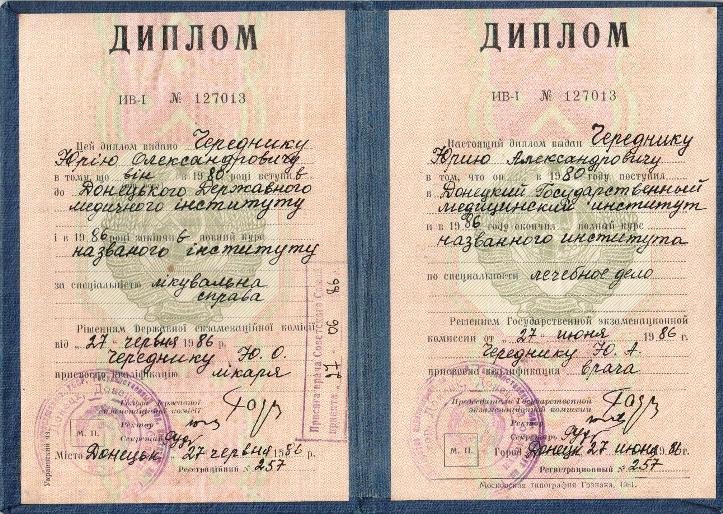 ДИПЛОМ
ИВ-I № 127013
Цей диплом видано Череднику
Юрію Олександровичу
в тому, що він в 1980 році вступив
до Донецького Державного
медичного інституту
і в 1986 році закінчив повний курс
названого інституту
за спеціальністю лікувальна
справа
Рішенням Державної екзаменаційної комісії
від „27" червня 1986 р.
Череднику Ю. О.
присвоєно кваліфікацію лікаря
Голова Державної
екзаменаційної комісії
Ректор
Секретар
М. П.
Місто Донецьк „27" червня 1986 р.
Реєстраційний № 257
Присяга врача Советского Союза
принята. 27 · 06 86
ДИПЛОМ
ИВ-I № 127013
Настоящий диплом выдан Череднику
Юрию Александровичу
в том, что он в 1980 году поступил
в Донецкий Государственный
медицинский институт
и в 1986 году окончил полный курс
названного института
по специальности лечебное дело
Решением Государственной экзаменационной
комиссии от „27" июня 1986 г.
Череднику Ю. А.
присвоена квалификация врача
Председатель Государственной
экзаменационной комиссии
Ректор
Секретарь
М. П.
Город Донецк 27 июня 1986г.
Регистрационный № 257
Московская типография Гознака. 1981.